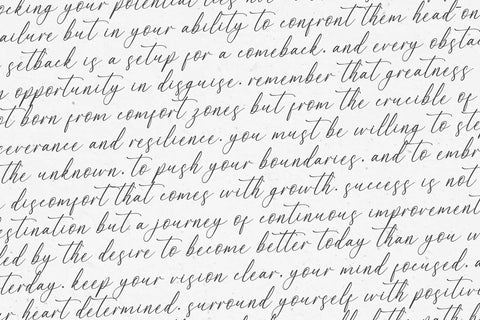 ocking your potential lies not
ailure but in your ability to confront them head on
setback is a setup for a comeback. and every obstac
n opportunity in disguise. remember that greatness
ot born from comfort zones but from the crucible of
severance and resilience. you must be willing to step
the unknown. to push your boundaries. and to embr
discomfort that comes with growth. success is not
estination but a journey of continuous improvement
led by the desire to become better today than you w
terday. keep your vision clear. your mind focused. a
ur heart determined. surround yourself with positiv
the path